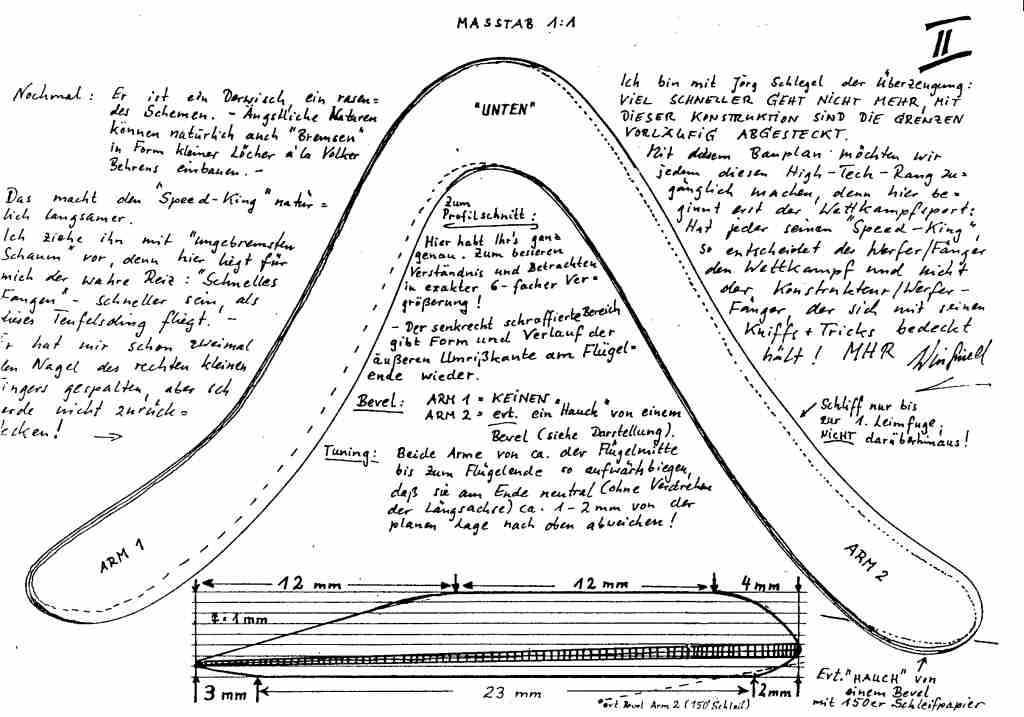 MASSTAB 1:1
II
Nochmal: Er ist ein Derwisch, ein rasen=
des Schemen. - Ängstliche Naturen
können natürlich auch "Bremsen"
in Form kleiner Löcher à la Volker
Behrens einbauen. -
Das macht den "Speed-King" natür=
lich langsamer.
Ich ziehe ihn mit "ungebremsten
Schaum" vor, denn hier liegt für
mich der wahre Reiz: "Schnelles
Fangen" - schneller sein, als
dieses Teufelsding fliegt. -
Er hat mir schon zweimal
den Nagel des rechten kleinen
Fingers gespalten, aber ich
werde nicht zurück=
stecken!
"UNTEN"
Zum
Profilschnitt:
Hier habt Ihr's ganz
genau. Zum besseren
Verständnis und Betrachten
in exakter 6-facher Ver-
größerung!
- Der senkrecht schraffierte Bereich
gibt Form und Verlauf der
äußeren Umrißkante am Flügel=
ende wieder.
Bevel: ARM 1 = KEINEN
ARM 2 = evt. ein "Hauch" von einem
Bevel (siehe Darstellung).
Tuning: Beide Arme von ca. der Flügelmitte
bis zum Flügelende so aufwärtsbiegen,
daß sie am Ende neutral (ohne Verdrehen
der Längsachse) ca. 1-2 mm von der
planen Lage nach oben abweichen!
Ich bin mit Jörg Schlegel der Überzeugung:
VIEL SCHNELLER GEHT NICHT MEHR, MIT
DIESER KONSTRUKTION SIND DIE GRENZEN
VORLÄUFIG ABGESTECKT.
Mit diesem Bauplan möchten wir
jedem diesen High-Tech-Rang zu=
gänglich machen, denn hier be=
ginnt erst der Wettkampfsport:
Hat jeder seinen "Speed-King",
so entscheidet der Werfer/Fänger
den Wettkampf und nicht
der Konstrukteur/Werfer-
Fänger, der sich mit seinen
Kniffs + Tricks bedeckt
hält! MHR Winfried
Schliff nur bis
zur 1. Leimfuge,
NICHT darüberhinaus!
ARM 1
ARM 2
12 mm
12 mm
4 mm
= 1 mm
3 mm
23 mm
2 mm
evt. Bevel Arm 2 (150° Schleif)
Evt. "HAUCH" von
einem Bevel
mit 150er Schleifpapier